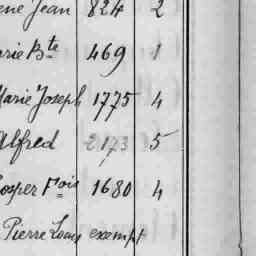 ené Jean 824 2
arie Bte 469 1
Marie Joseph 1775 4
Alfred 2173 5
osper Fois 1680 4
Pierre Louis exempt